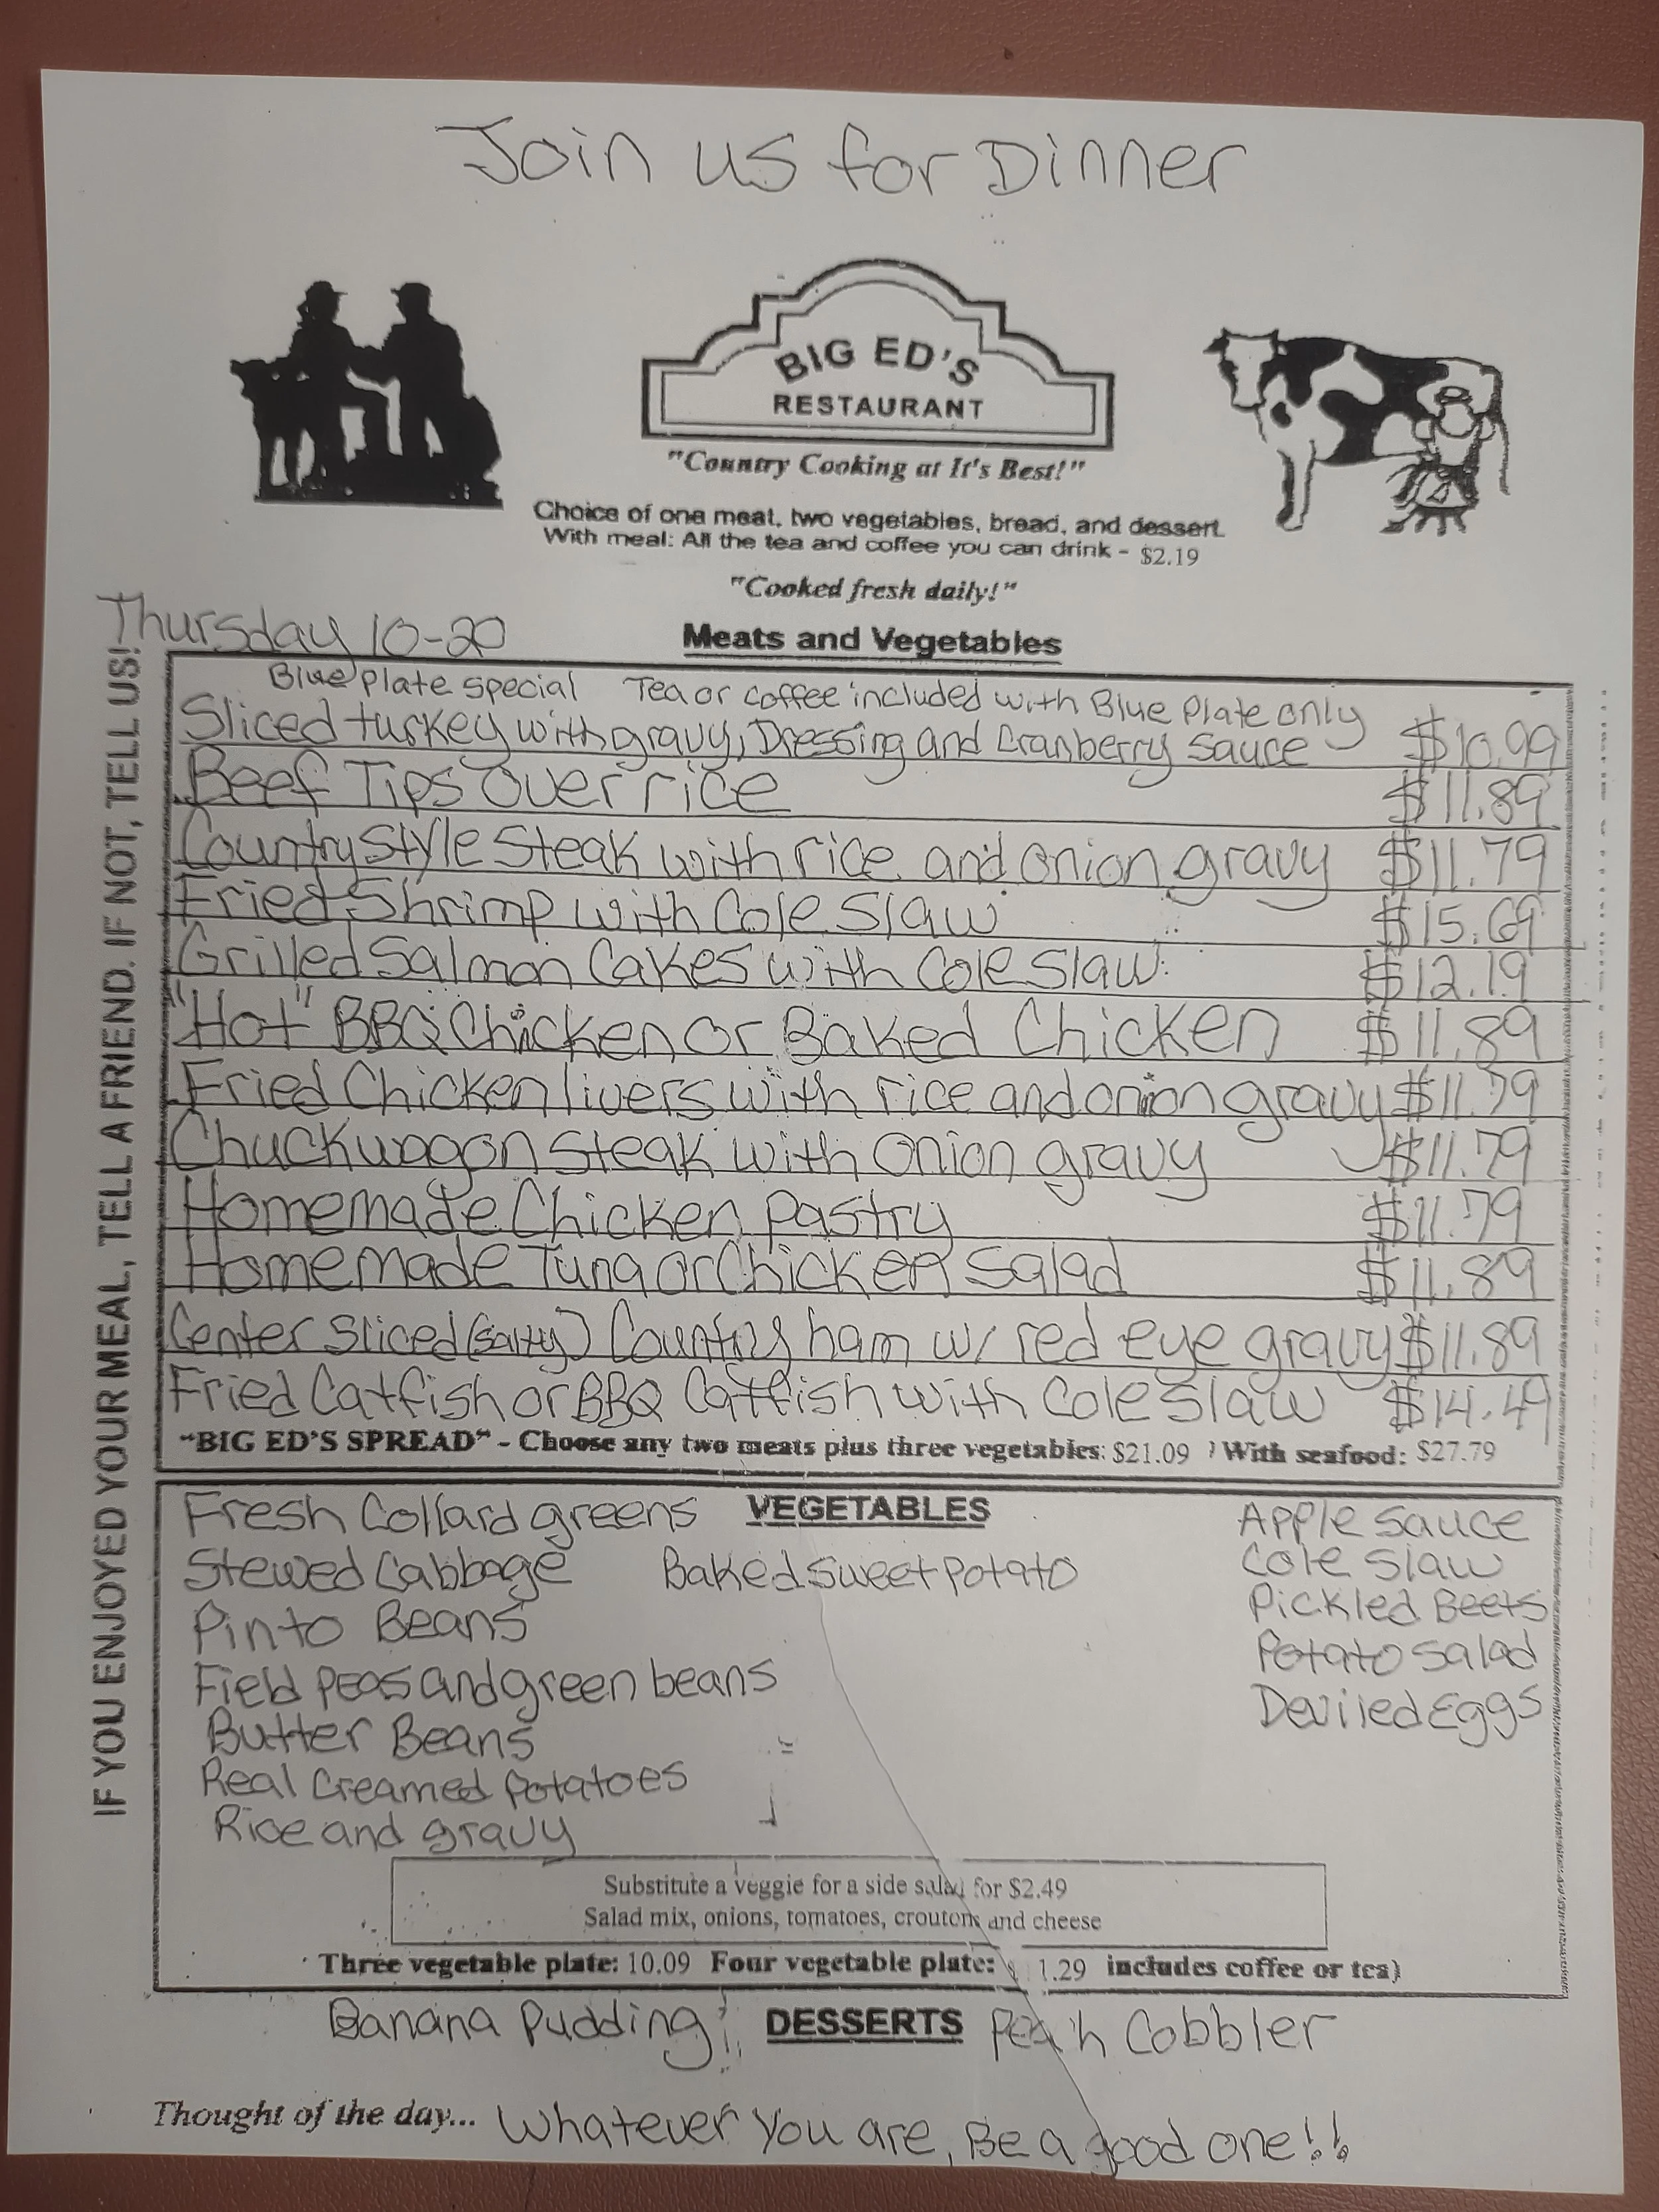 Join us for Dinner
BIG ED'S
RESTAURANT
"Country Cooking at It's Best!"
Choice of one meat, two vegetables, bread, and dessert.
With meal: All the tea and coffee you can drink - $2.19
"Cooked fresh daily!"
Thursday 10-20
Meats and Vegetables
IF YOU ENJOYED YOUR MEAL, TELL A FRIEND. IF NOT, TELL US!
Blue Plate special Tea or coffee included with Blue Plate only
Sliced turkey with gravy, Dressing and Cranberry Sauce $10.99
Beef Tips Over rice $11.89
Country Style Steak with rice and onion gravy $11.79
Fried Shrimp with Cole Slaw $15.69
Grilled Salmon Cakes with Cole Slaw $12.19
"Hot" BBQ Chicken or Baked Chicken $11.89
Fried Chicken livers with rice and onion gravy $11.79
Chuckwagon Steak with onion gravy $11.79
Homemade Chicken Pastry $11.79
Homemade Tuna or Chicken Salad $11.89
Center Sliced (salty) Country ham w/ red eye gravy $11.89
Fried Catfish or BBQ Catfish with Cole Slaw $14.49
"BIG ED'S SPREAD" - Choose any two meats plus three vegetables: $21.09 ) With seafood: $27.79
VEGETABLES
Fresh Collard greens
Stewed Cabbage
Pinto Beans
Field Peas and green beans
Butter Beans
Real Creamed Potatoes
Rice and gravy
Baked Sweet Potato
Apple Sauce
Cole Slaw
Pickled Beets
Potato Salad
Deviled Eggs
Substitute a veggie for a side salad for $2.49
Salad mix, onions, tomatoes, croutons and cheese
Three vegetable plate: 10.09 Four vegetable plate: 1.29 includes coffee or tea)
Banana Pudding DESSERTS Peach Cobbler
Thought of the day... Whatever You are, Be a good one!!